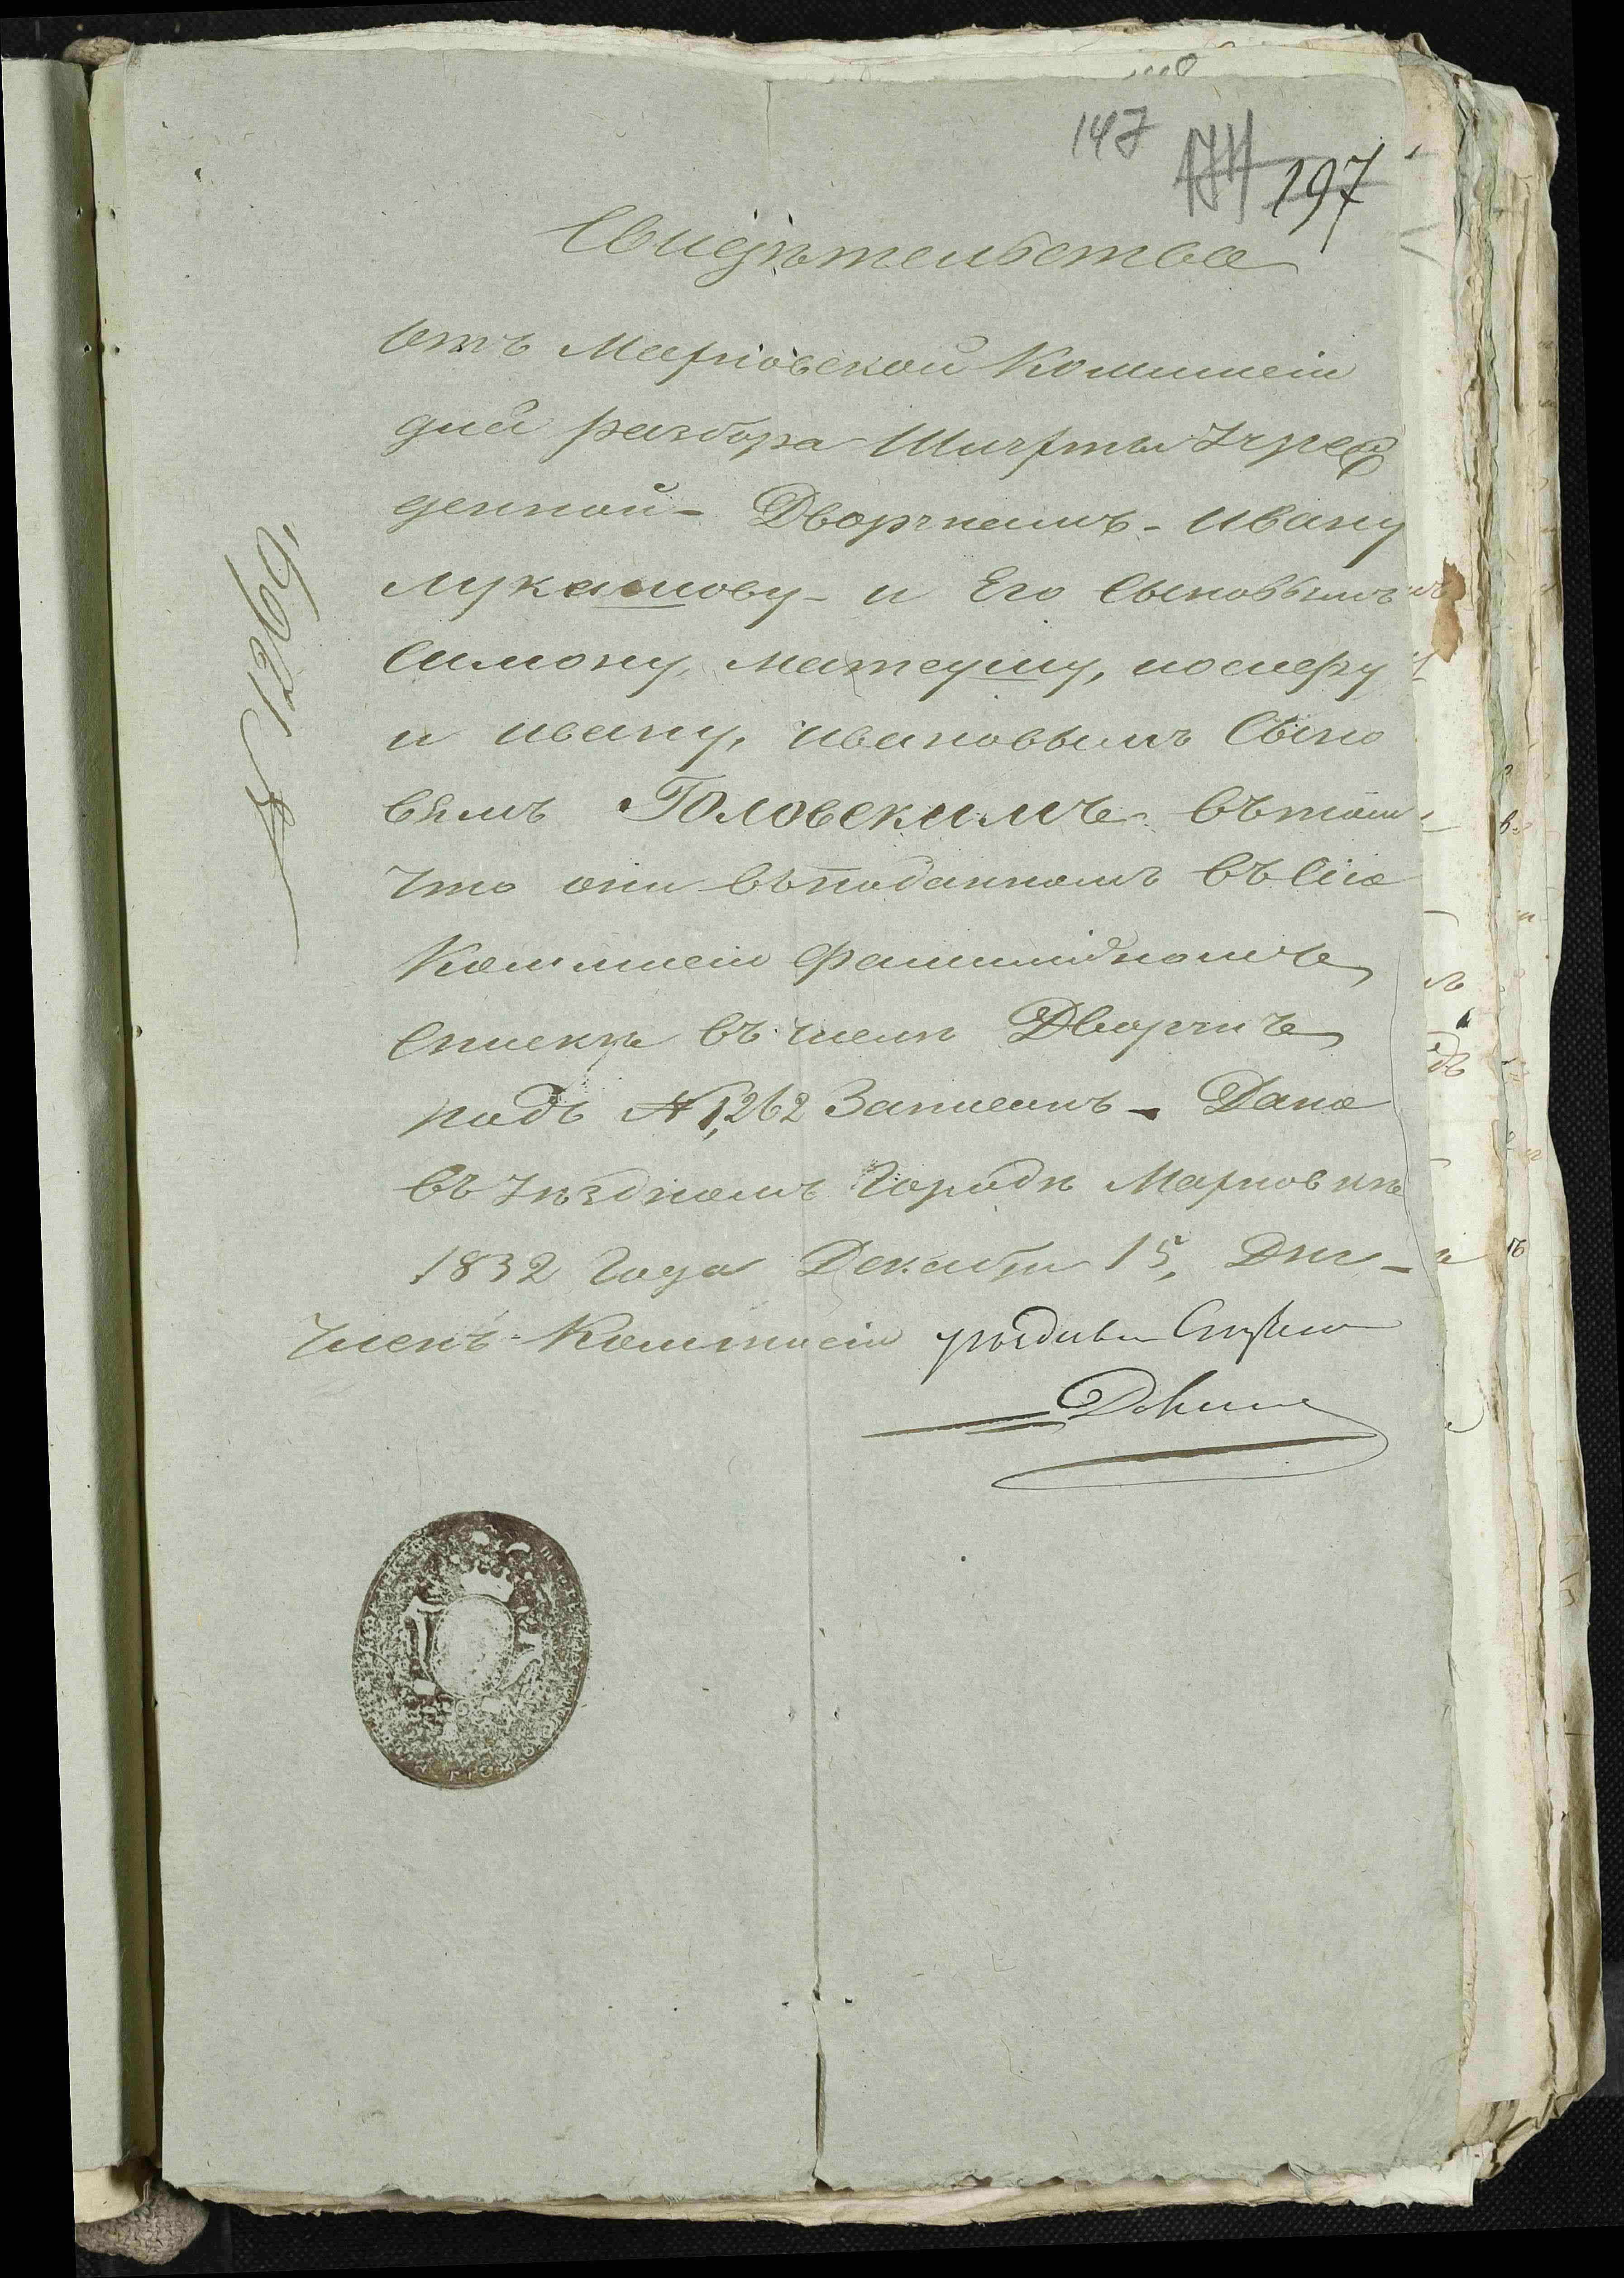 147 197
Свидѣтельство
Отъ Марковской Коммисіи
для разбора Шляхты Учреж
денной - Дворянамъ - Ивану
Лукашову - и Его Сыновьямъ
Симону, Матеушу, Иосифу
и Ивану, Ивановымъ Сыно
вьямъ Головскимъ въ томъ
что они въ поданномъ въ Сію
Коммисію Фамилійномъ
Спискѣ въ числѣ Дворянъ
подъ № 1,262 Записаны - Дано
въ Уѣздномъ Городѣ Марковкѣ
1832 Года Декабря 15, Дня -
Членъ Коммисіи
№ 1269,